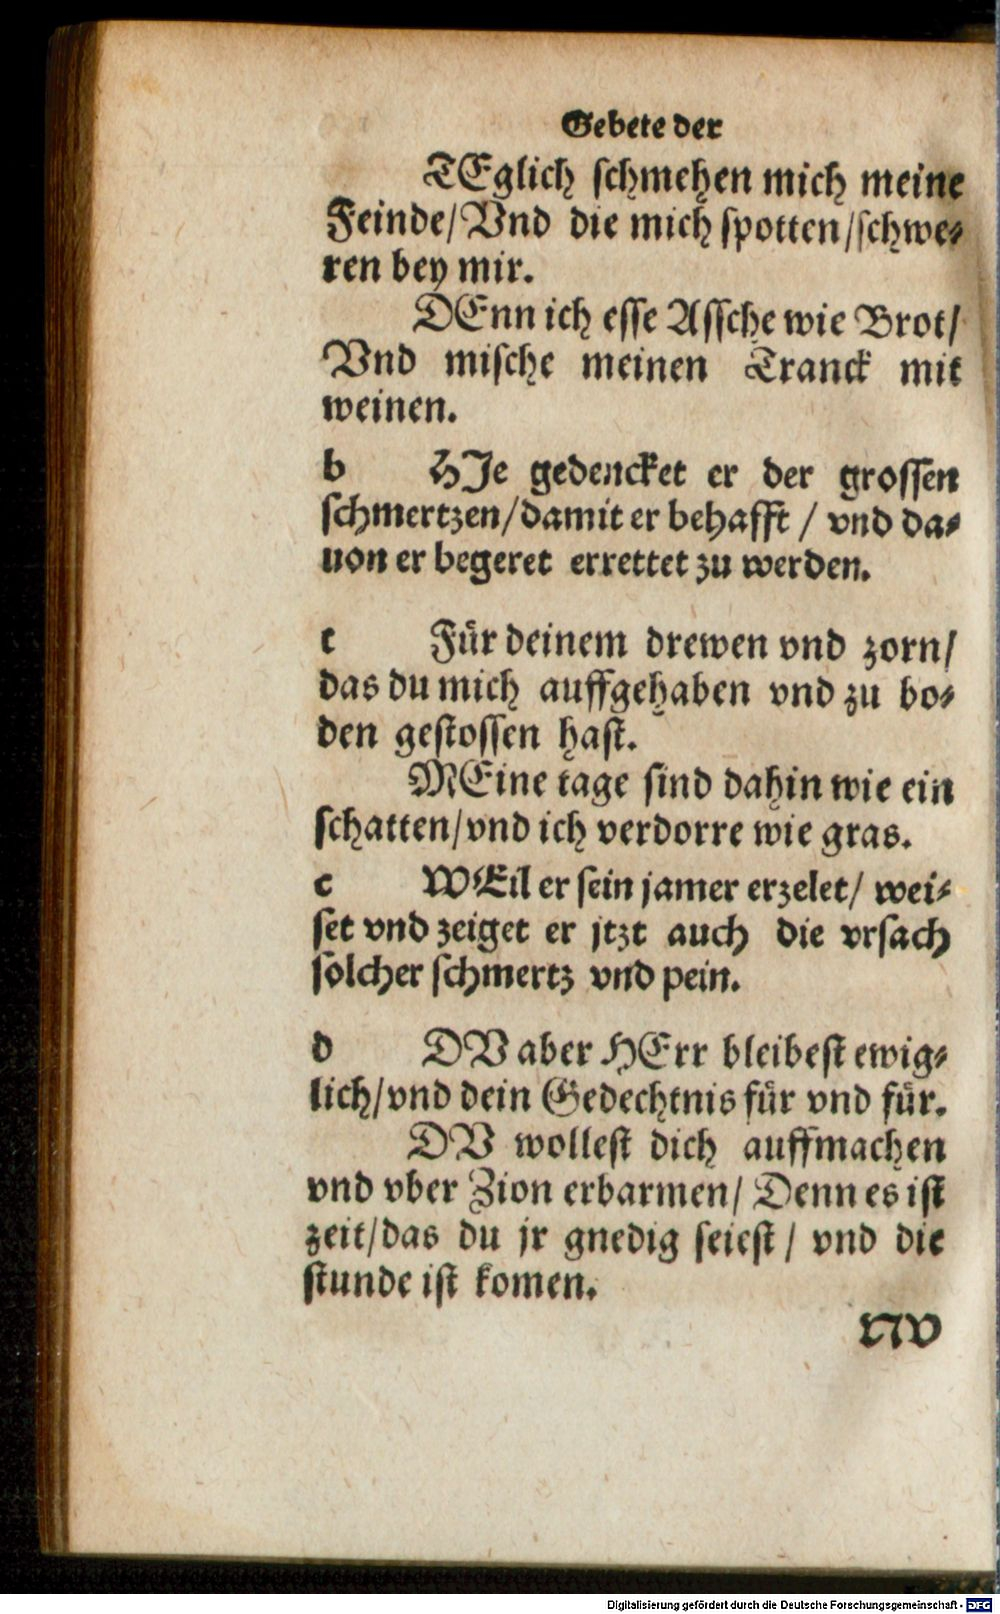 Gebete der
TEglich schmehen mich meine
Feinde/Vnd die mich spotten/schwe-
ren bey mir.
DEnn ich esse Assche wie Brot/
Vnd mische meinen Tranck mit
weinen.
b HIe gedencket er der grossen
schmertzen/damit er behafft / vnd da-
uon er begeret errettet zu werden.
c Für deinem drewen vnd zorn/
das du mich auffgehaben vnd zu bo-
den gestossen hast.
MEine tage sind dahin wie ein
schatten/vnd ich verdorre wie gras.
c WEil er sein jamer erzelet/ wei-
set vnd zeiget er jtzt auch die vrsach
solcher schmertz vnd pein.
d DV aber HErr bleibest ewig-
lich/vnd dein Gedechtnis für vnd für.
DV wollest dich auffmachen
vnd vber Zion erbarmen/ Denn es ist
zeit/das du jr gnedig seiest / vnd die
stunde ist komen.
NV
Digitalisierung gefördert durch die Deutsche Forschungsgemeinschaft - DFG